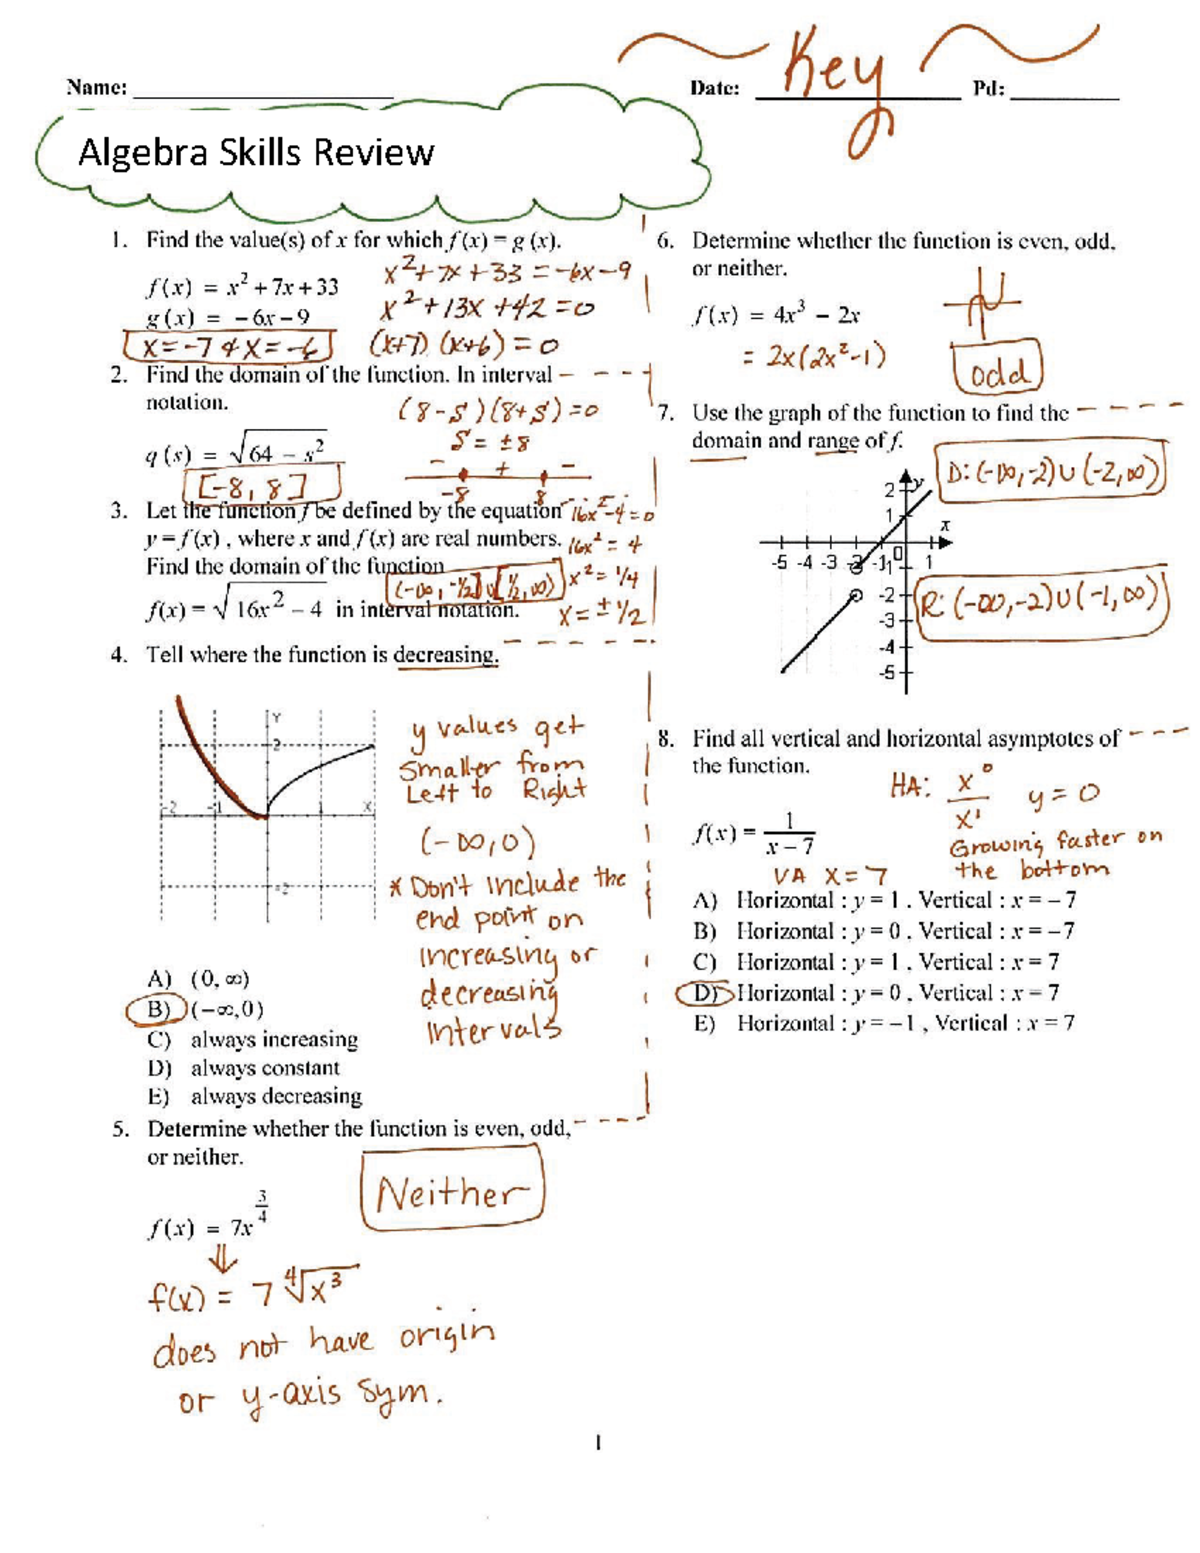 Key
Name: ____________ Date: ____________ Pd: ____________
Algebra Skills Review
1. Find the value(s) of x for which f (x) = g (x).
f (x) = x² + 7x + 33
g (x) = – 6x – 9
x²+7x+33 = -6x-9
x²+13x+42=0
(x+7)(x+6)=0
x=-7 & x=-6
2. Find the domain of the function. In interval
notation.
q (s) = √64 – s²
(8-s)(8+s)=0
s = ±8
- + -
-8 8
[-8, 8]
3. Let the function f be defined by the equation
y = f (x) , where x and f (x) are real numbers.
Find the domain of the function
f(x) = √16x² – 4 in interval notation.
16x²-4=0
16x² = 4
x² = 1/4
x = ± 1/2
(-∞, -1/2] ∪ [1/2, ∞)
4. Tell where the function is decreasing.
Y
2
-2 -1 1 X
-2
y values get
smaller from
Left to Right
(-∞,0)
* Don't include the
end point on
increasing or
decreasing
Intervals
A) (0, ∞)
B) (−∞,0)
C) always increasing
D) always constant
E) always decreasing
5. Determine whether the function is even, odd,
or neither.
f (x) = 7x^(3/4)
Neither
⇓
f(x) = 7 ∜x³
does not have origin
or y-axis sym.
6. Determine whether the function is even, odd,
or neither.
f (x) = 4x³ – 2x
= 2x(2x²-1)
odd
7. Use the graph of the function to find the
domain and range of f.
D: (-∞,-2)∪(-2,∞)
2 y
1
x
-5 -4 -3 -2 -1 0 1
-1
-2
-3
-4
-5
R: (-∞,-2)∪(-1,∞)
8. Find all vertical and horizontal asymptotes of
the function.
f(x) = 1/(x – 7)
HA: x⁰/x¹ y = 0
Growing faster on
the bottom
VA x=7
A) Horizontal : y = 1 , Vertical : x = – 7
B) Horizontal : y = 0 , Vertical : x = –7
C) Horizontal : y = 1 , Vertical : x = 7
D) Horizontal : y = 0 , Vertical : x = 7
E) Horizontal : y = –1 , Vertical : x = 7
1